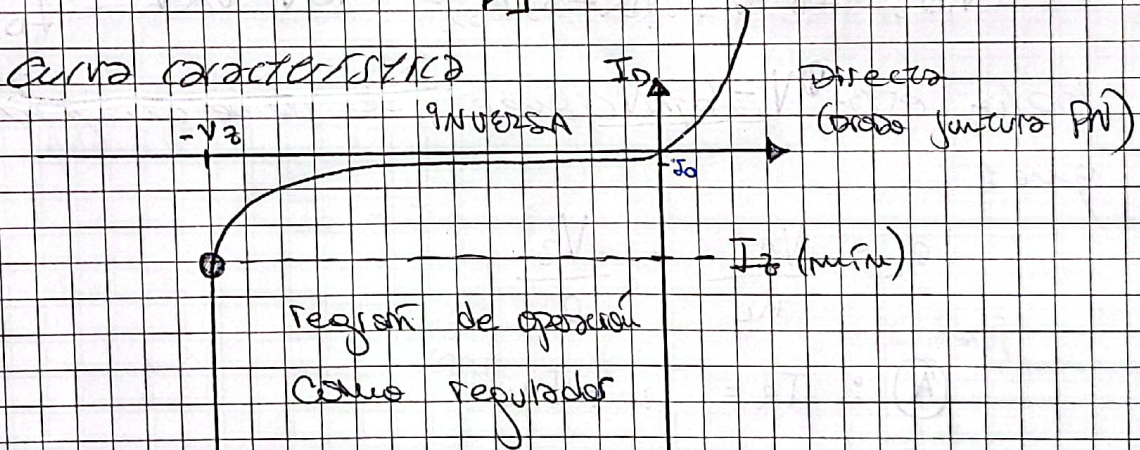 Curva característica
I_D
Directa
(Diodo juntura PN)
-Vz
INVERSA
-I₀
Iz (mín)
región de operación
Como regulador